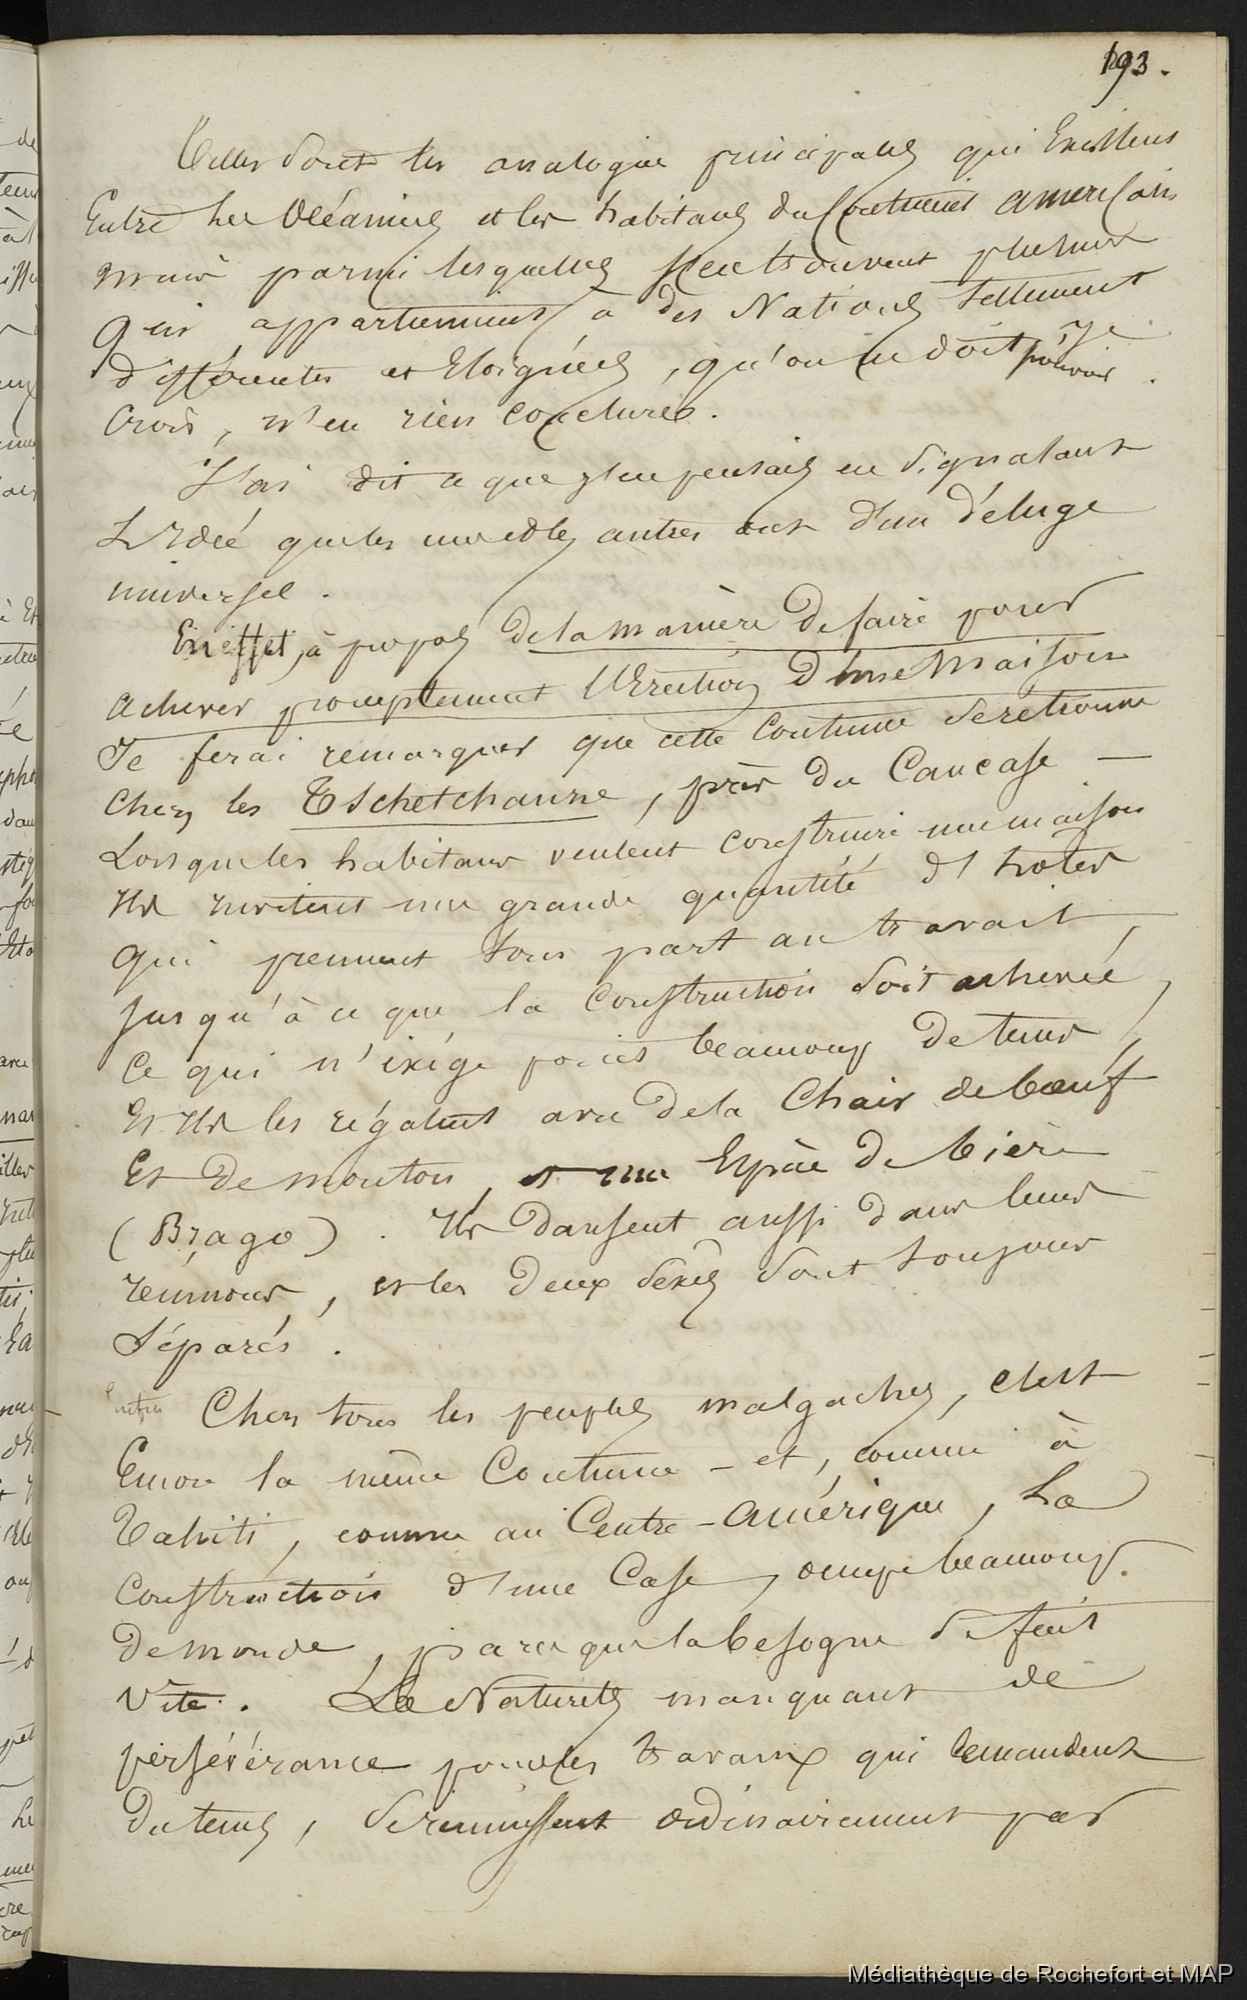 193.
Telles sont les analogies principales qui Existent
Entre les Océaniens et les habitans du Continent américain
mais parmi lesquelles s'en trouvent plusieurs
qui appartiennent à des Nations tellement
différentes et Eloignées, qu'on ne doit pouvoir, je
crois, n'en rien conclure.
J'ai dit ce que j'en pensais en signalant
L'Idée que les uns et les autres ont d'un déluge
universel.
En effet, à propos de la manière de faire pour
achever promptement l'Erection d'une Maison
Je ferai remarquer que cette Coutume se retrouve
Chez les Tschetchanzne, près du Caucase —
Lorsque les habitans veulent construire une maison
Ils invitent une grande quantité d'hôtes
qui prennent tous part au travail,
jusqu'à ce que la Construction soit achevée,
Ce qui n'exige pas beaucoup de tems,
Et Ils les régalent avec de la Chair de bœuf
Et de mouton, et une Espèce de bière
(Brago). Ils dansent aussi dans leurs
réunions, et les deux sexes sont toujours
séparés.
Enfin Chez tous les peuples malgaches, c'est
Encore la même Coutume – et, comme à
Tahiti, comme au Centre-Amérique, La
Construction d'une Case, occupe beaucoup
de monde, parce que la besogne se fait
vite. Les Naturels manquant de
persévérance pour les travaux qui demandent
du tems, se réunissent ordinairement par
Médiathèque de Rochefort et MAP